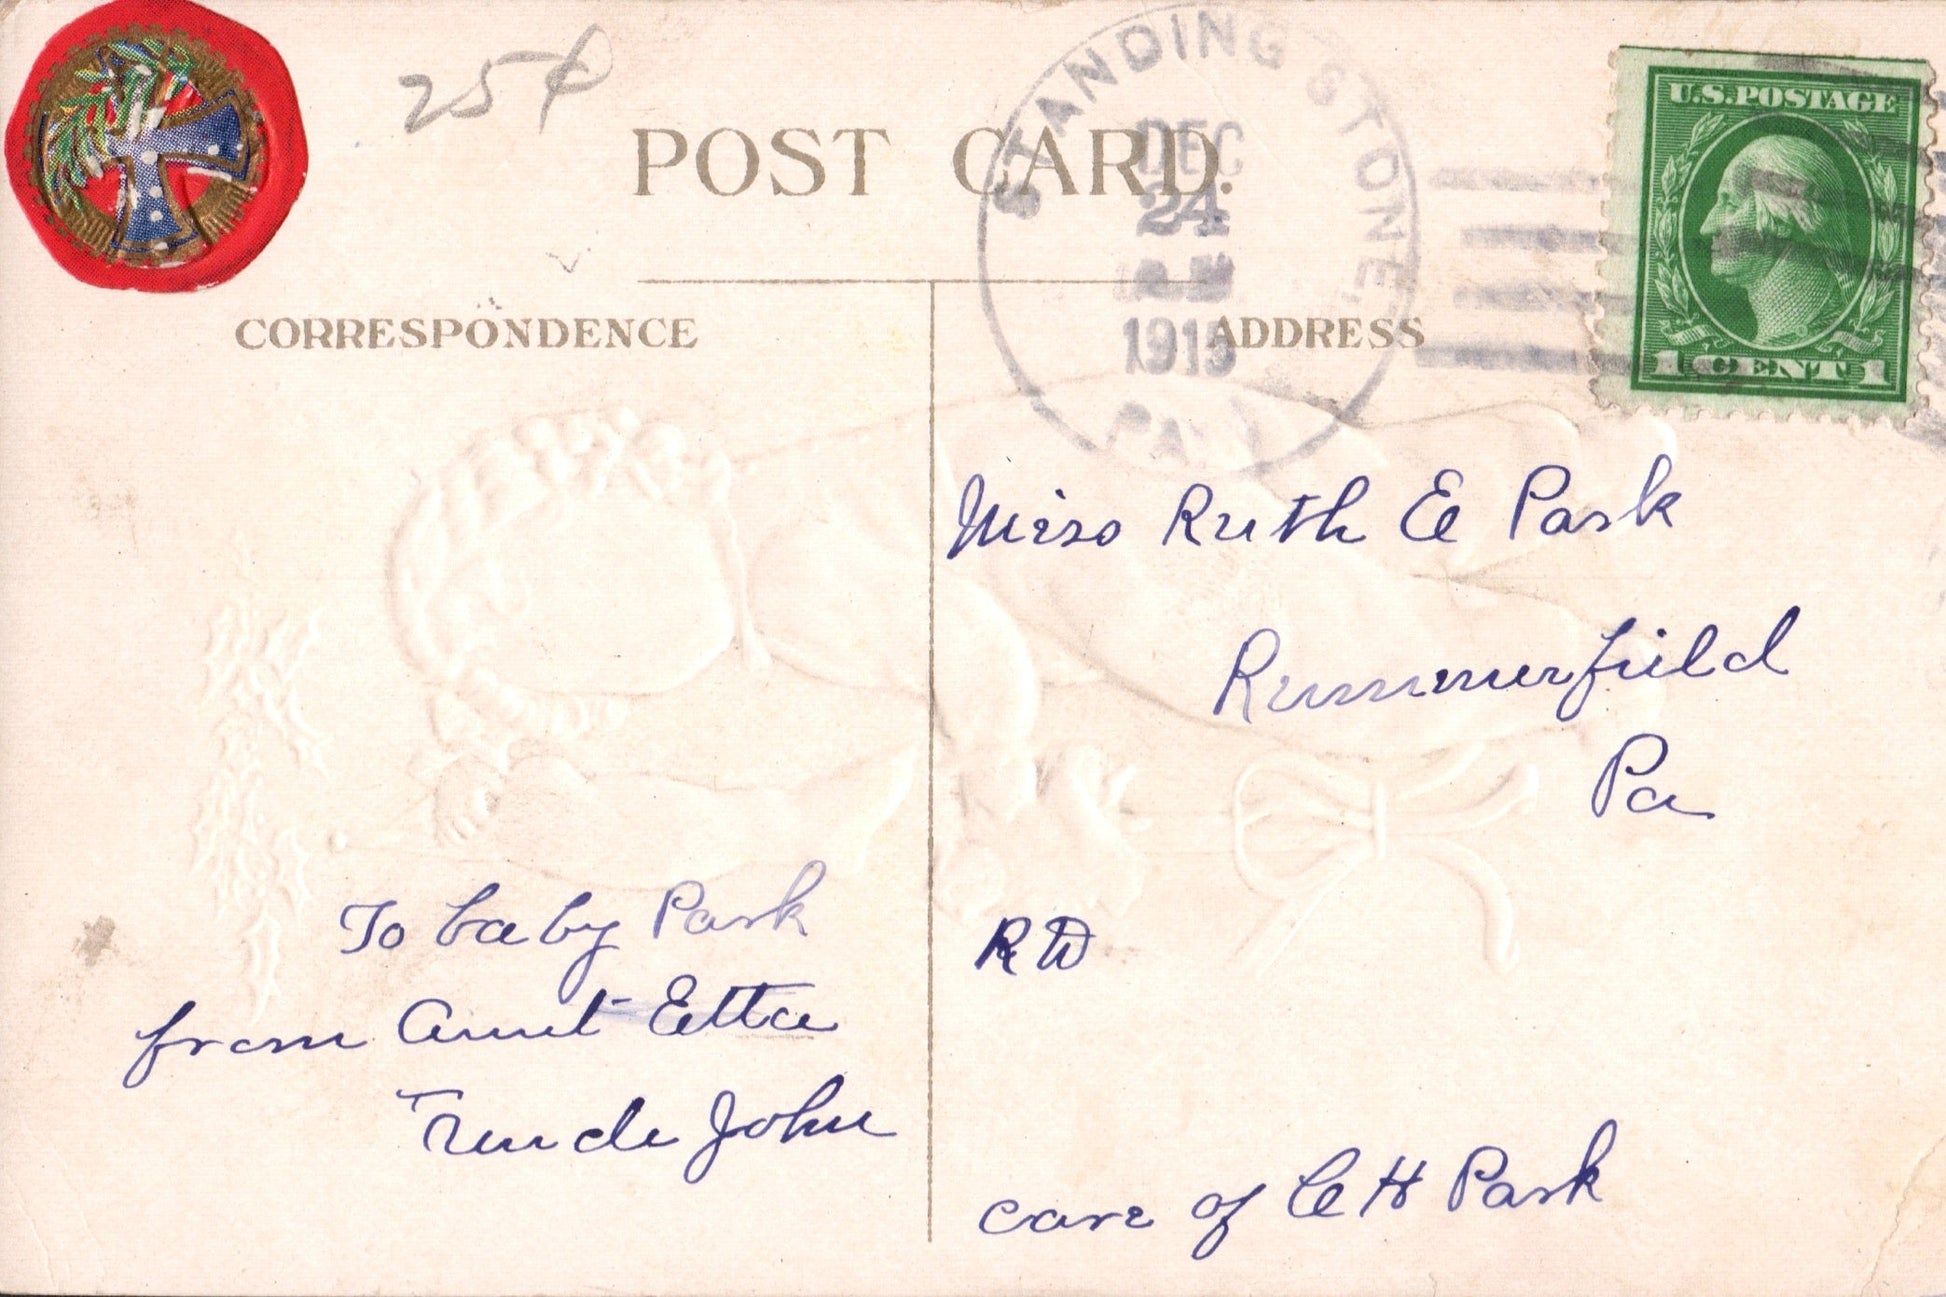 25¢
POST CARD.
STANDING STONE,
DEC
24
1913
PA.
U.S. POSTAGE
1 CENT 1
CORRESPONDENCE
ADDRESS
Miss Ruth E Park
Rummerfield
Pa
R D
care of C H Park
To baby Park
from Aunt Etta
Uncle John